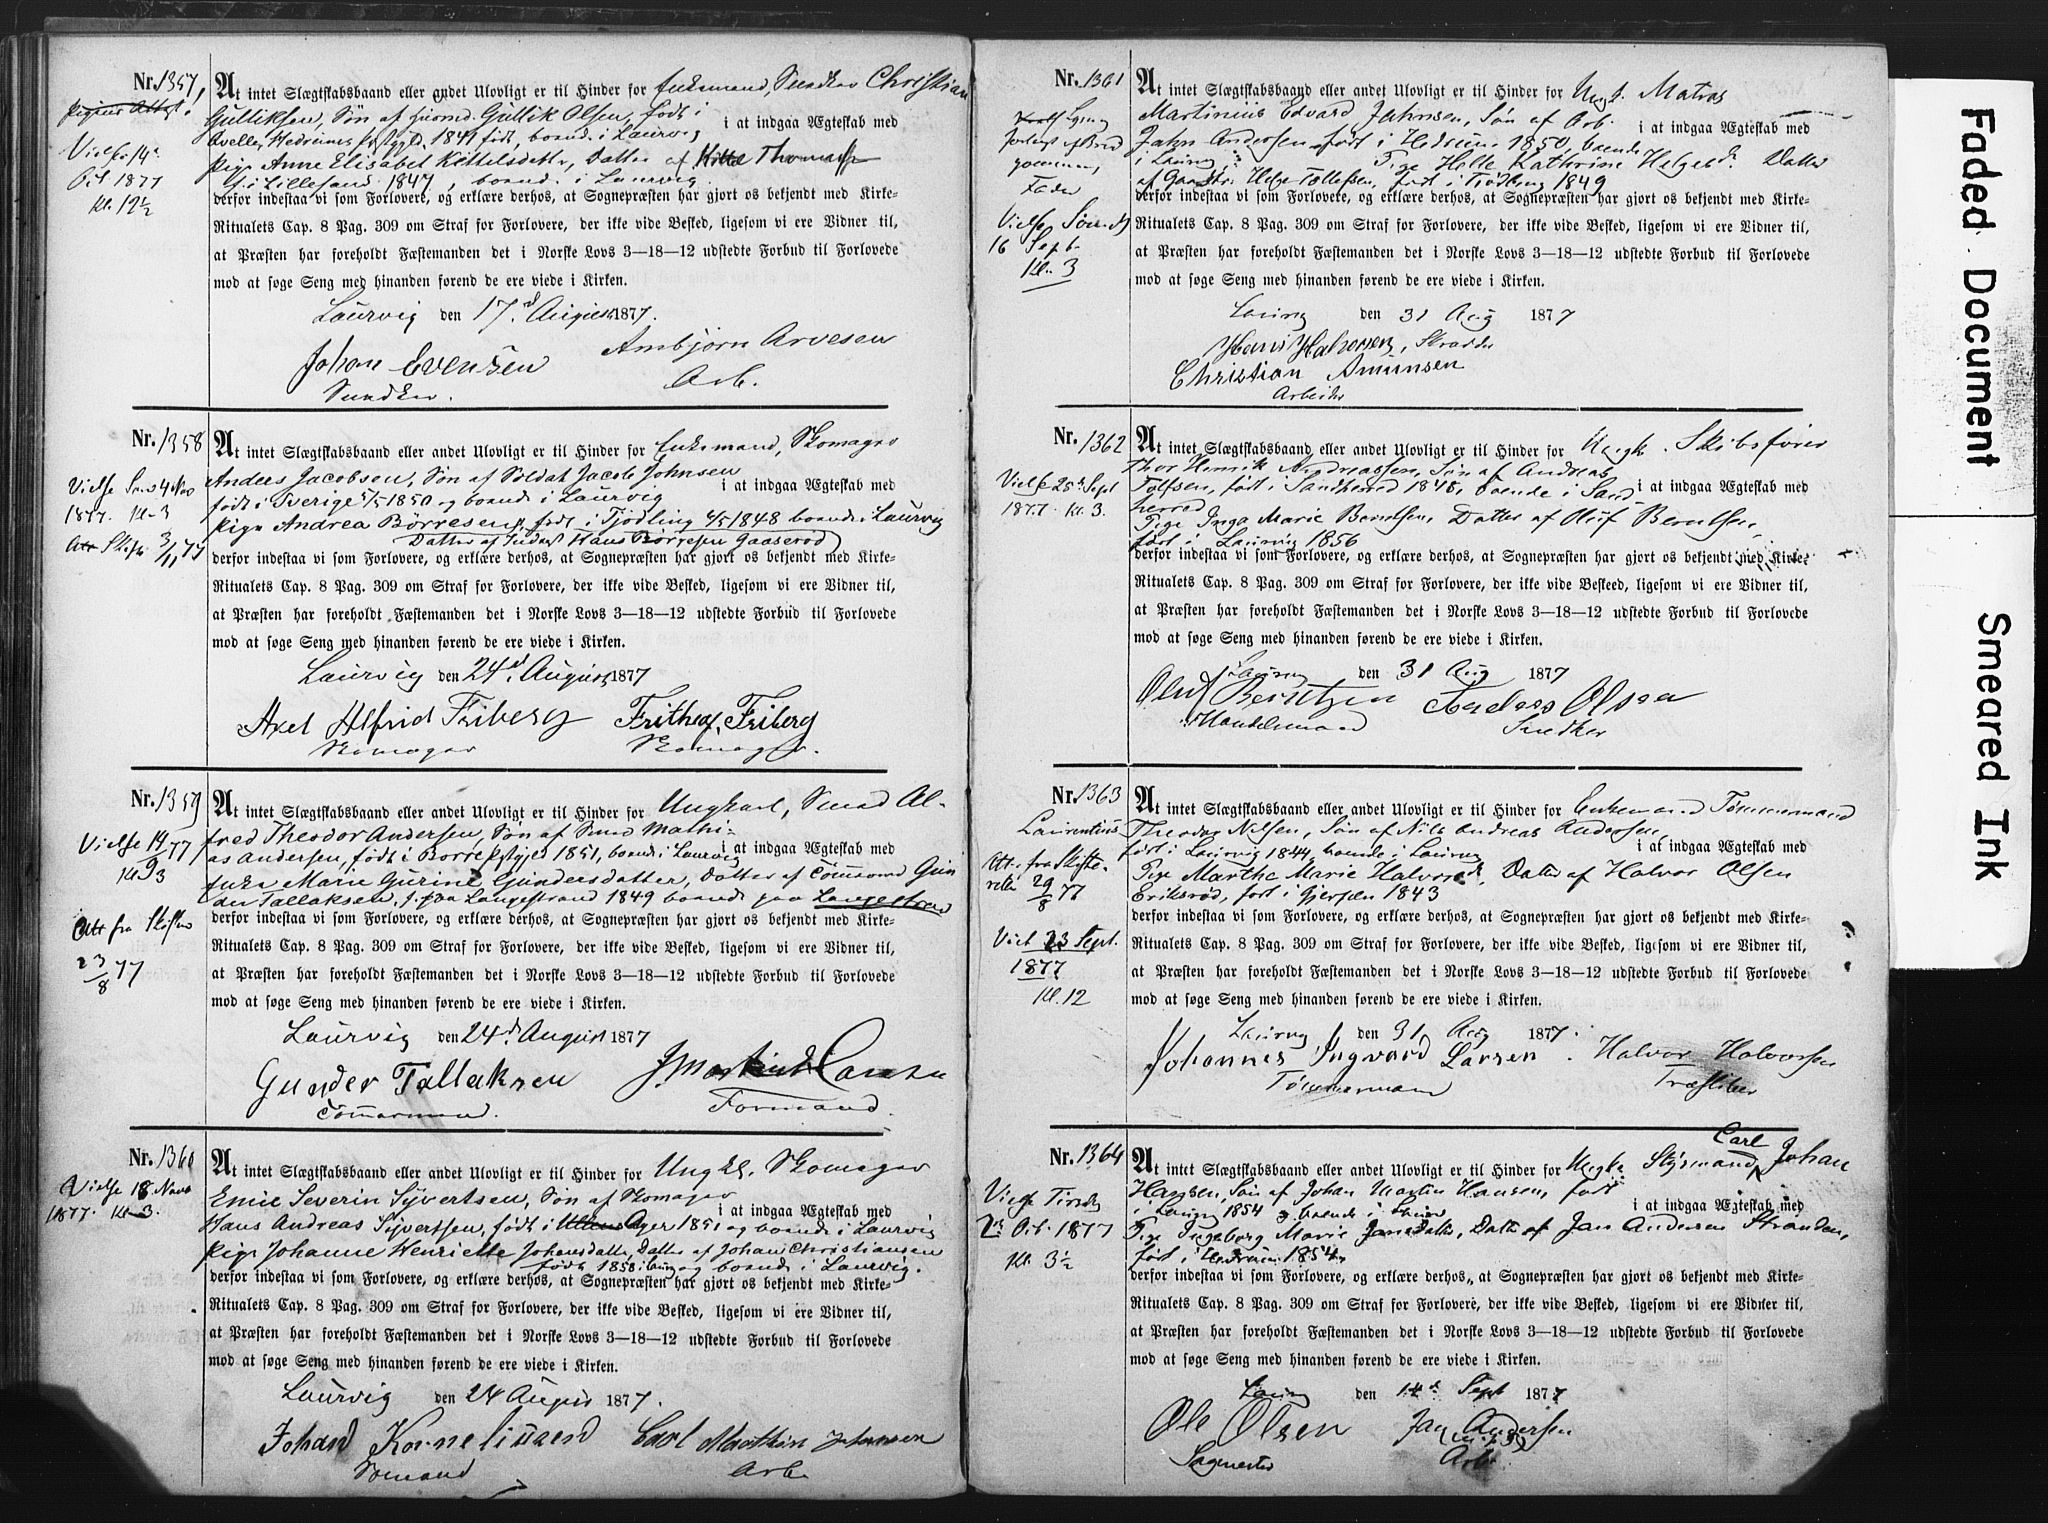 Nr. 1357,
At intet Slægtskabsbaand eller andet Ulovligt er til Hinder for Enkemand, Snedker Christian
Gulliksen, Søn af Huusmd. Gullik Olsen, født i
Hedrums Præstgjd. 1841 født, boend. i Laurvig
i at indgaa Ægteskab med
Pige Anne Elisabet Kittelsdatter, Datter af Thomas
f. i Lillesand 1847, boend. i Laurvig.
Vielse 14de
Oct 1877
Kl. 12½
derfor indestaa vi som Forlovere, og erklære derhos, at Sognepræsten har gjort os bekjendt med Kirke-
Ritualets Cap. 8 Pag. 309 om Straf for Forlovere, der ikke vide Besked, ligesom vi ere Vidner til,
at Præsten har foreholdt Fæstemanden det i Norske Lovs 3—18—12 udstedte Forbud til Forlovede
mod at søge Seng med hinanden førend de ere viede i Kirken.
Laurvig den 17d August 1877.
Johan Evensen Arnbjørn Arvesen
Snedker. Arb.
Nr. 1358
At intet Slægtskabsbaand eller andet Ulovligt er til Hinder for Enkemand, Skomager
Anders Jacobsen, Søn af Soldat Jacob Johnsen
født i Sverige 5/5 1850 og boende i Laurvig
i at indgaa Ægteskab med
Pige Andrea Börresen, født i Tjödling 4/5 1848 boende i Laurvig
Datter af Hans Börresen Gaaserød
Vielse 4 Nov
1877. Kl. 3
derfor indestaa vi som Forlovere, og erklære derhos, at Sognepræsten har gjort os bekjendt med Kirke-
Ritualets Cap. 8 Pag. 309 om Straf for Forlovere, der ikke vide Besked, ligesom vi ere Vidner til,
at Præsten har foreholdt Fæstemanden det i Norske Lovs 3—18—12 udstedte Forbud til Forlovede
mod at søge Seng med hinanden førend de ere viede i Kirken.
Laurvig den 24d August 1877
Axel Alfrid Friberg Frithiof Friberg
Skomager Skomager.
Nr. 1359
At intet Slægtskabsbaand eller andet Ulovligt er til Hinder for Ungkarl, Smed Al-
fred Theodor Andersen, Søn af Smed Mathi-
as Andersen, født i Borre Pstgjd 1851, boend. i Laurvig
i at indgaa Ægteskab med
Enke Marie Gurine Gundersdatter, Datter af Tömmermd Gun
der Tallaksen, f. paa Langestrand 1849 boende paa Langestrand
Vielse 14/9 77
Kl 3
Att fra Skiften
23/8 77
derfor indestaa vi som Forlovere, og erklære derhos, at Sognepræsten har gjort os bekjendt med Kirke-
Ritualets Cap. 8 Pag. 309 om Straf for Forlovere, der ikke vide Besked, ligesom vi ere Vidner til,
at Præsten har foreholdt Fæstemanden det i Norske Lovs 3—18—12 udstedte Forbud til Forlovede
mod at søge Seng med hinanden førend de ere viede i Kirken.
Laurvig den 24d August 1877
Gunder Tallaksen
Tömmermand. Formand.
Nr. 1360
At intet Slægtskabsbaand eller andet Ulovligt er til Hinder for Ungkl. Skomager
Emil Severin Syvertsen, Søn af Skomager
Hans Andreas Syvertsen, født i Ager 1851 og boende i Laurvig
i at indgaa Ægteskab med
Pige Johanne Henriette Johansdatter, Datter af Johan Christiansen
født 1858 i Laurvig og boende i Laurvig.
Vielse 18 Novb
1877. Kl 3.
derfor indestaa vi som Forlovere, og erklære derhos, at Sognepræsten har gjort os bekjendt med Kirke-
Ritualets Cap. 8 Pag. 309 om Straf for Forlovere, der ikke vide Besked, ligesom vi ere Vidner til,
at Præsten har foreholdt Fæstemanden det i Norske Lovs 3—18—12 udstedte Forbud til Forlovede
mod at søge Seng med hinanden førend de ere viede i Kirken.
Laurvig den 24 August 1877.
Johan Korneliusend Carl Mathin Johansen
Sömand Arb.
Nr. 1361
At intet Slægtskabsbaand eller andet Ulovligt er til Hinder for Ungk. Matros
Martinius Edvard Jahnsen, Søn af Arb.
Jahn Andersen født i Hedrum 1850, boende
i Laurvig,
i at indgaa Ægteskab med
Pige Helle Kathrine Helgesd. Datter
af Helge Tollefsen, født i Tjødling 1849
Vielse Sønd
16 Sept.
Kl. 3
derfor indestaa vi som Forlovere, og erklære derhos, at Sognepræsten har gjort os bekjendt med Kirke-
Ritualets Cap. 8 Pag. 309 om Straf for Forlovere, der ikke vide Besked, ligesom vi ere Vidner til,
at Præsten har foreholdt Fæstemanden det i Norske Lovs 3—18—12 udstedte Forbud til Forlovede
mod at søge Seng med hinanden førend de ere viede i Kirken.
Laurvig den 31 Aug 1877
Hans Halvorsen, Skrædder
Christian Amunsen
Arbeider
Nr. 1362
At intet Slægtskabsbaand eller andet Ulovligt er til Hinder for Ungk. Skibsfører
Thor Henrik Andreassen, Søn af Andreas
Tolfsen, født i Sandherred 1848, boende i Sand-
herred
i at indgaa Ægteskab med
Pige Inga Marie Berntsen, Datter af Oluf Berntsen,
født i Laurvig 1856
Vielse 25de Sept
1877. Kl. 3.
derfor indestaa vi som Forlovere, og erklære derhos, at Sognepræsten har gjort os bekjendt med Kirke-
Ritualets Cap. 8 Pag. 309 om Straf for Forlovere, der ikke vide Besked, ligesom vi ere Vidner til,
at Præsten har foreholdt Fæstemanden det i Norske Lovs 3—18—12 udstedte Forbud til Forlovede
mod at søge Seng med hinanden førend de ere viede i Kirken.
Laurvig den 31 Aug 1877
Oluf Berntzen Anders Olsen
Handelsmand Snedker
Nr. 1363
At intet Slægtskabsbaand eller andet Ulovligt er til Hinder for Enkemand Tømmermand
Theodor Nilsen, Søn af Nils Andreas Andersen,
født i Laurvig 1844, boende i Laurvig
i at indgaa Ægteskab med
Pige Marthe Marie Halvorsd., Datter af Halvor Olsen
Eriksrød, født i Gjerpen 1843
Laurentius
Att. fra Skifte-
retten 29/8 77
Viet 23 Sept.
1877
Kl. 12
derfor indestaa vi som Forlovere, og erklære derhos, at Sognepræsten har gjort os bekjendt med Kirke-
Ritualets Cap. 8 Pag. 309 om Straf for Forlovere, der ikke vide Besked, ligesom vi ere Vidner til,
at Præsten har foreholdt Fæstemanden det i Norske Lovs 3—18—12 udstedte Forbud til Forlovede
mod at søge Seng med hinanden førend de ere viede i Kirken.
Laurvig den 31 Aug 1877.
Johannes Ingvard Larsen. Halvor Halvorsen
Tømmermand
Nr. 1364
At intet Slægtskabsbaand eller andet Ulovligt er til Hinder for Ungk. Styrmand Carl Johan
Hansen, Søn af Johan Martin Hansen, født
i Laurvig 1854 boende i
i at indgaa Ægteskab med
Pige Ingeborg Marie Jansdatter, Datter af Jan Andersen Stranden,
født i Hedrum 1854
Vielse Tirsdg
2den Oct. 1877
Kl. 3½
derfor indestaa vi som Forlovere, og erklære derhos, at Sognepræsten har gjort os bekjendt med Kirke-
Ritualets Cap. 8 Pag. 309 om Straf for Forlovere, der ikke vide Besked, ligesom vi ere Vidner til,
at Præsten har foreholdt Fæstemanden det i Norske Lovs 3—18—12 udstedte Forbud til Forlovede
mod at søge Seng med hinanden førend de ere viede i Kirken.
Laurvig den 14d Sept 1877
Ole Olsen Jan Andersen
Sagmester Arb.
Faded Document
Smeared Ink